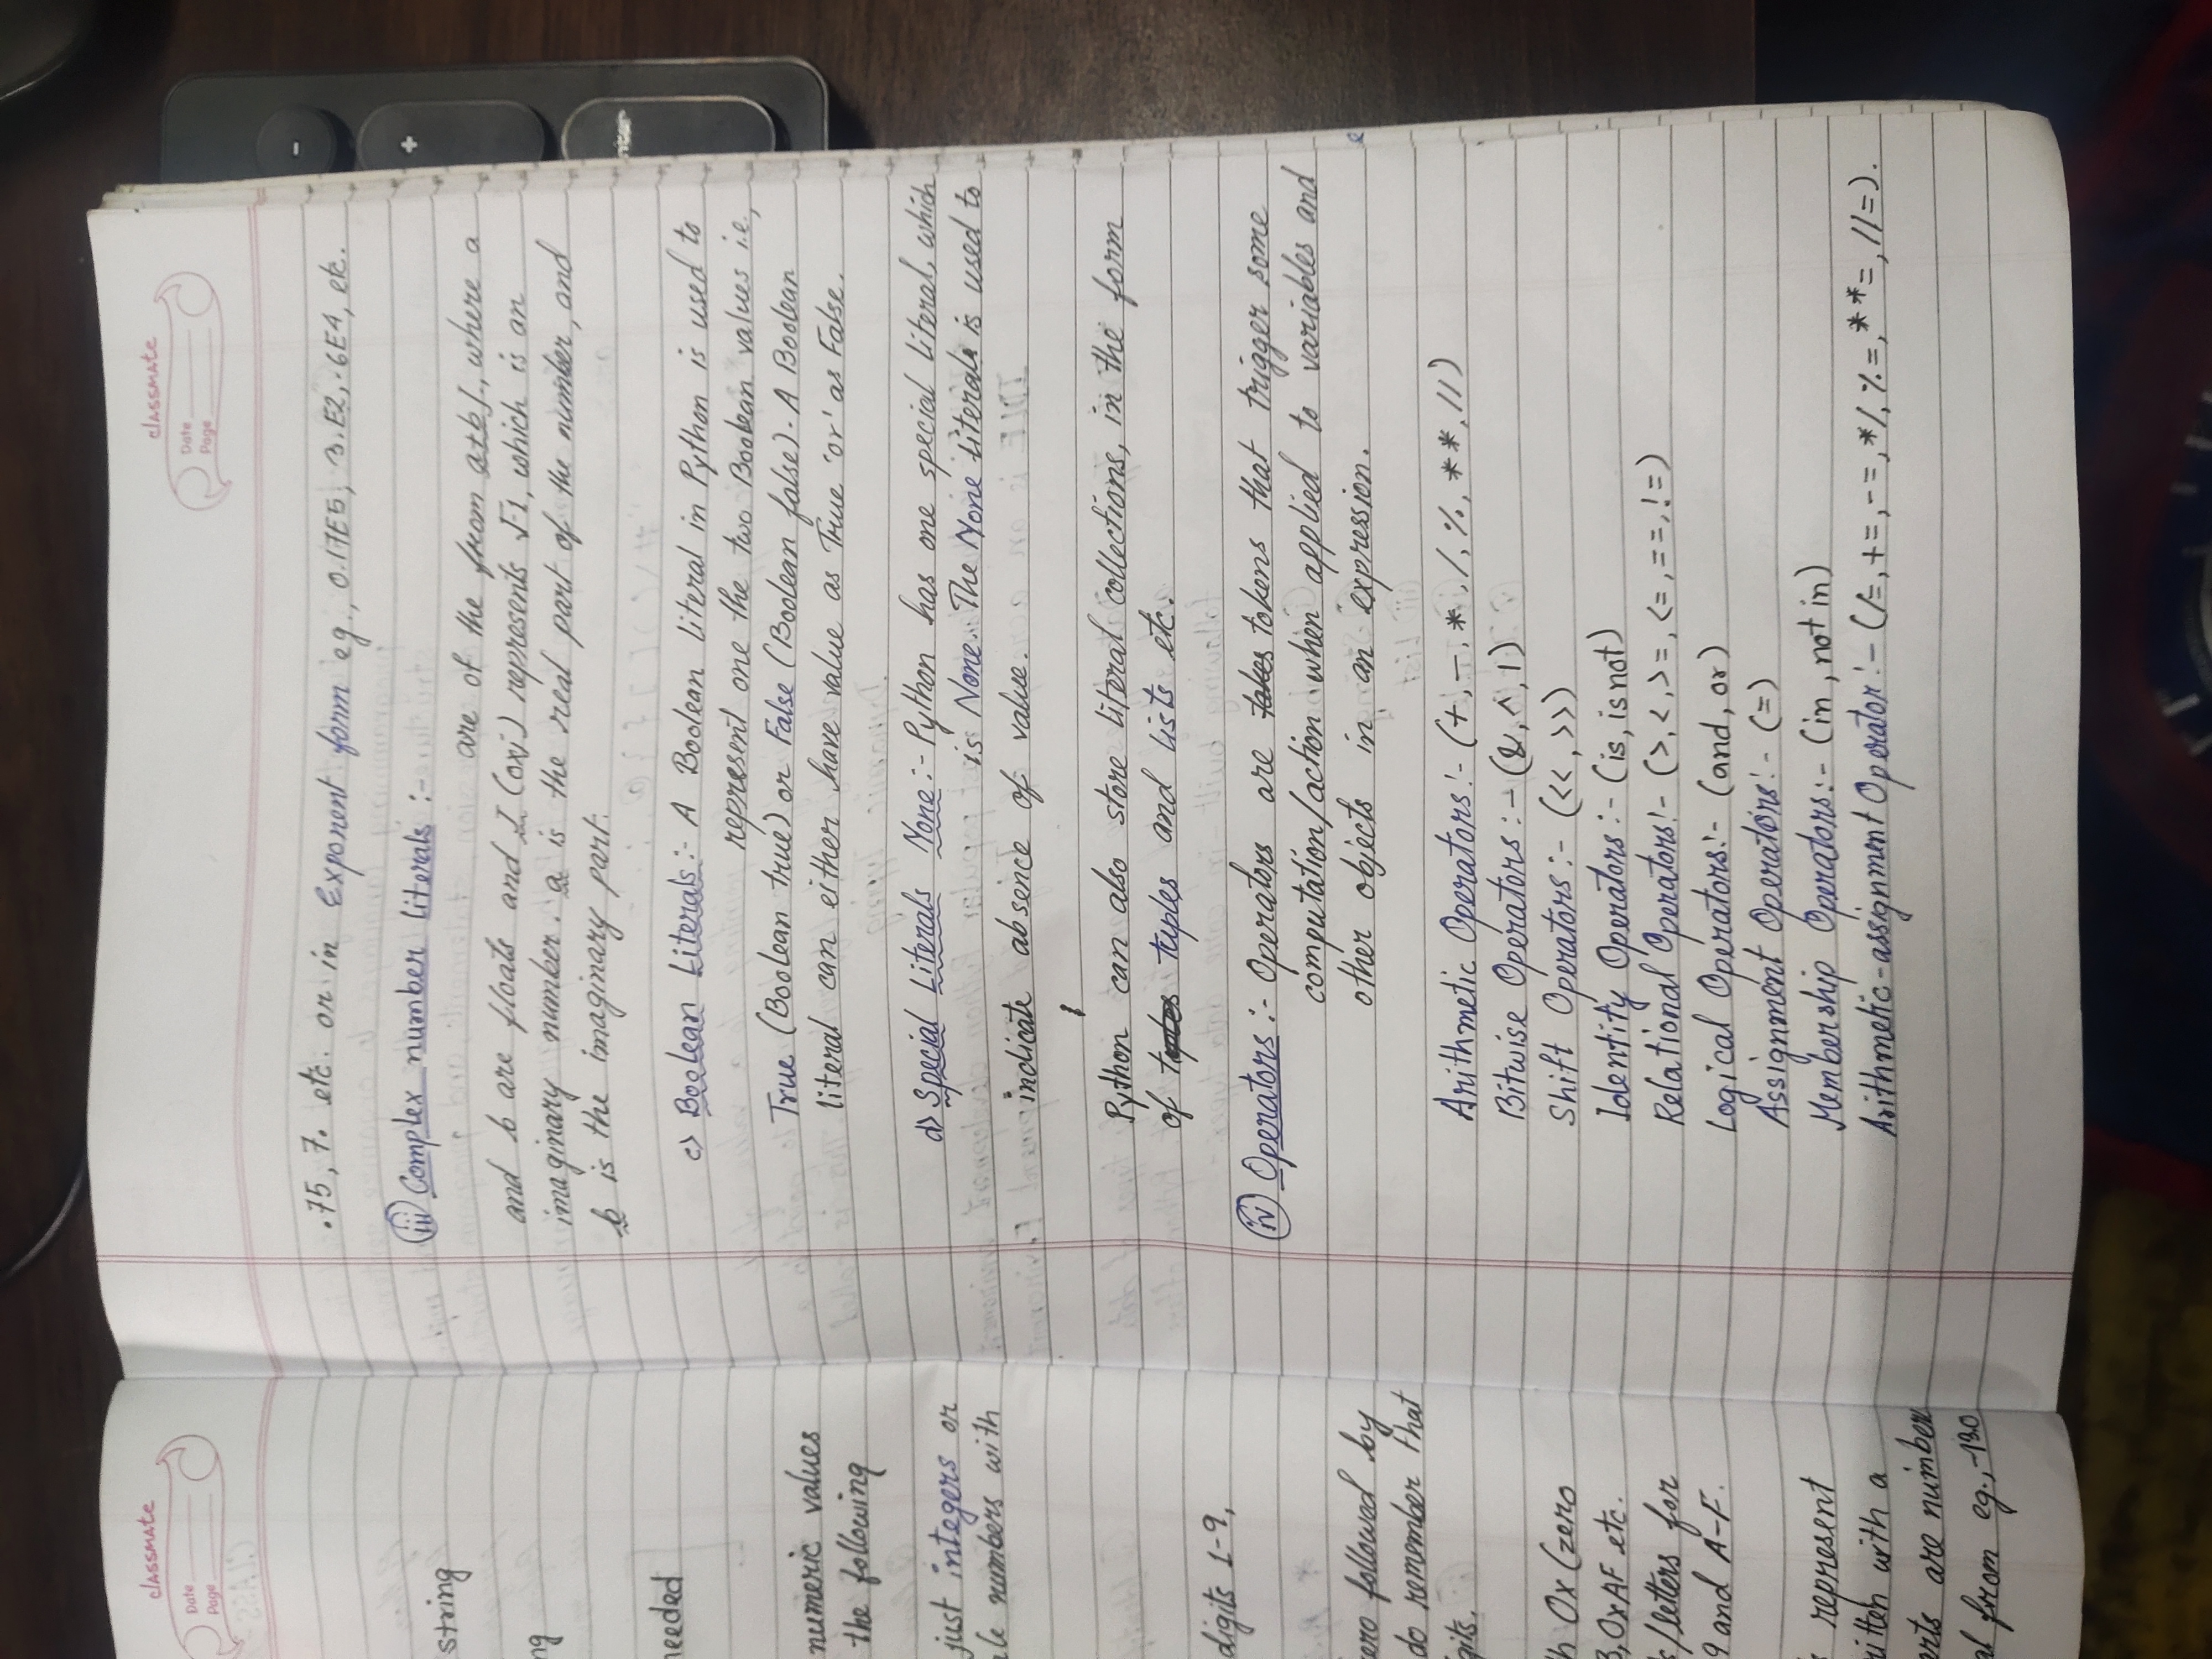 classmate
Date
Page
string
ng
needed
numeric values
the following
just integers or
ale numbers with
digits 1-9,
zero followed by
do remember that
gits.
th 0x (zero
3, 0xAF etc.
s/letters for
9 and A-F.
s represent
ritten with a
arts are number
al from eg., -13.0
classmate
Date
Page
.75, 7. etc. or in Exponent form eg., 0.17E5, 3.E2, .6E4, etc.
iii Complex number literals :-
are of the from a+bj, where a
and b are floats and J (orj) represents √-1, which is an
imaginary number. a is the real part of the number, and
b is the imaginary part.
c) Boolean Literals:- A Boolean literal in Python is used to
represent one the two Boolean values i.e.,
True (Boolean true) or False (Boolean false). A Boolean
literal can either have value as True 'or' as False.
d) Special Literals None:- Python has one special literal, which
is None. The None literals is used to
indicate absence of value.
Python can also store literal collections, in the form
of tuples and lists etc.
iv Operators :- Operators are takes tokens that trigger some
computation/action when applied to variables and
other objects in an expression.
Arithmetic Operators:- (+, -, *, /, %, **, //)
Bitwise Operators :- (&, ^, |)
Shift Operators :- (<<, >>)
Identity Operators :- (is, is not)
Relational Operators:- (>, <, >=, <=, ==, !=)
Logical Operators:- (and, or)
Assignment Operators:- (=)
Membership Operators:- (in, not in)
Arithmetic-assignment Operator:- (/=, +=, -=, */, %=, **=, //=).